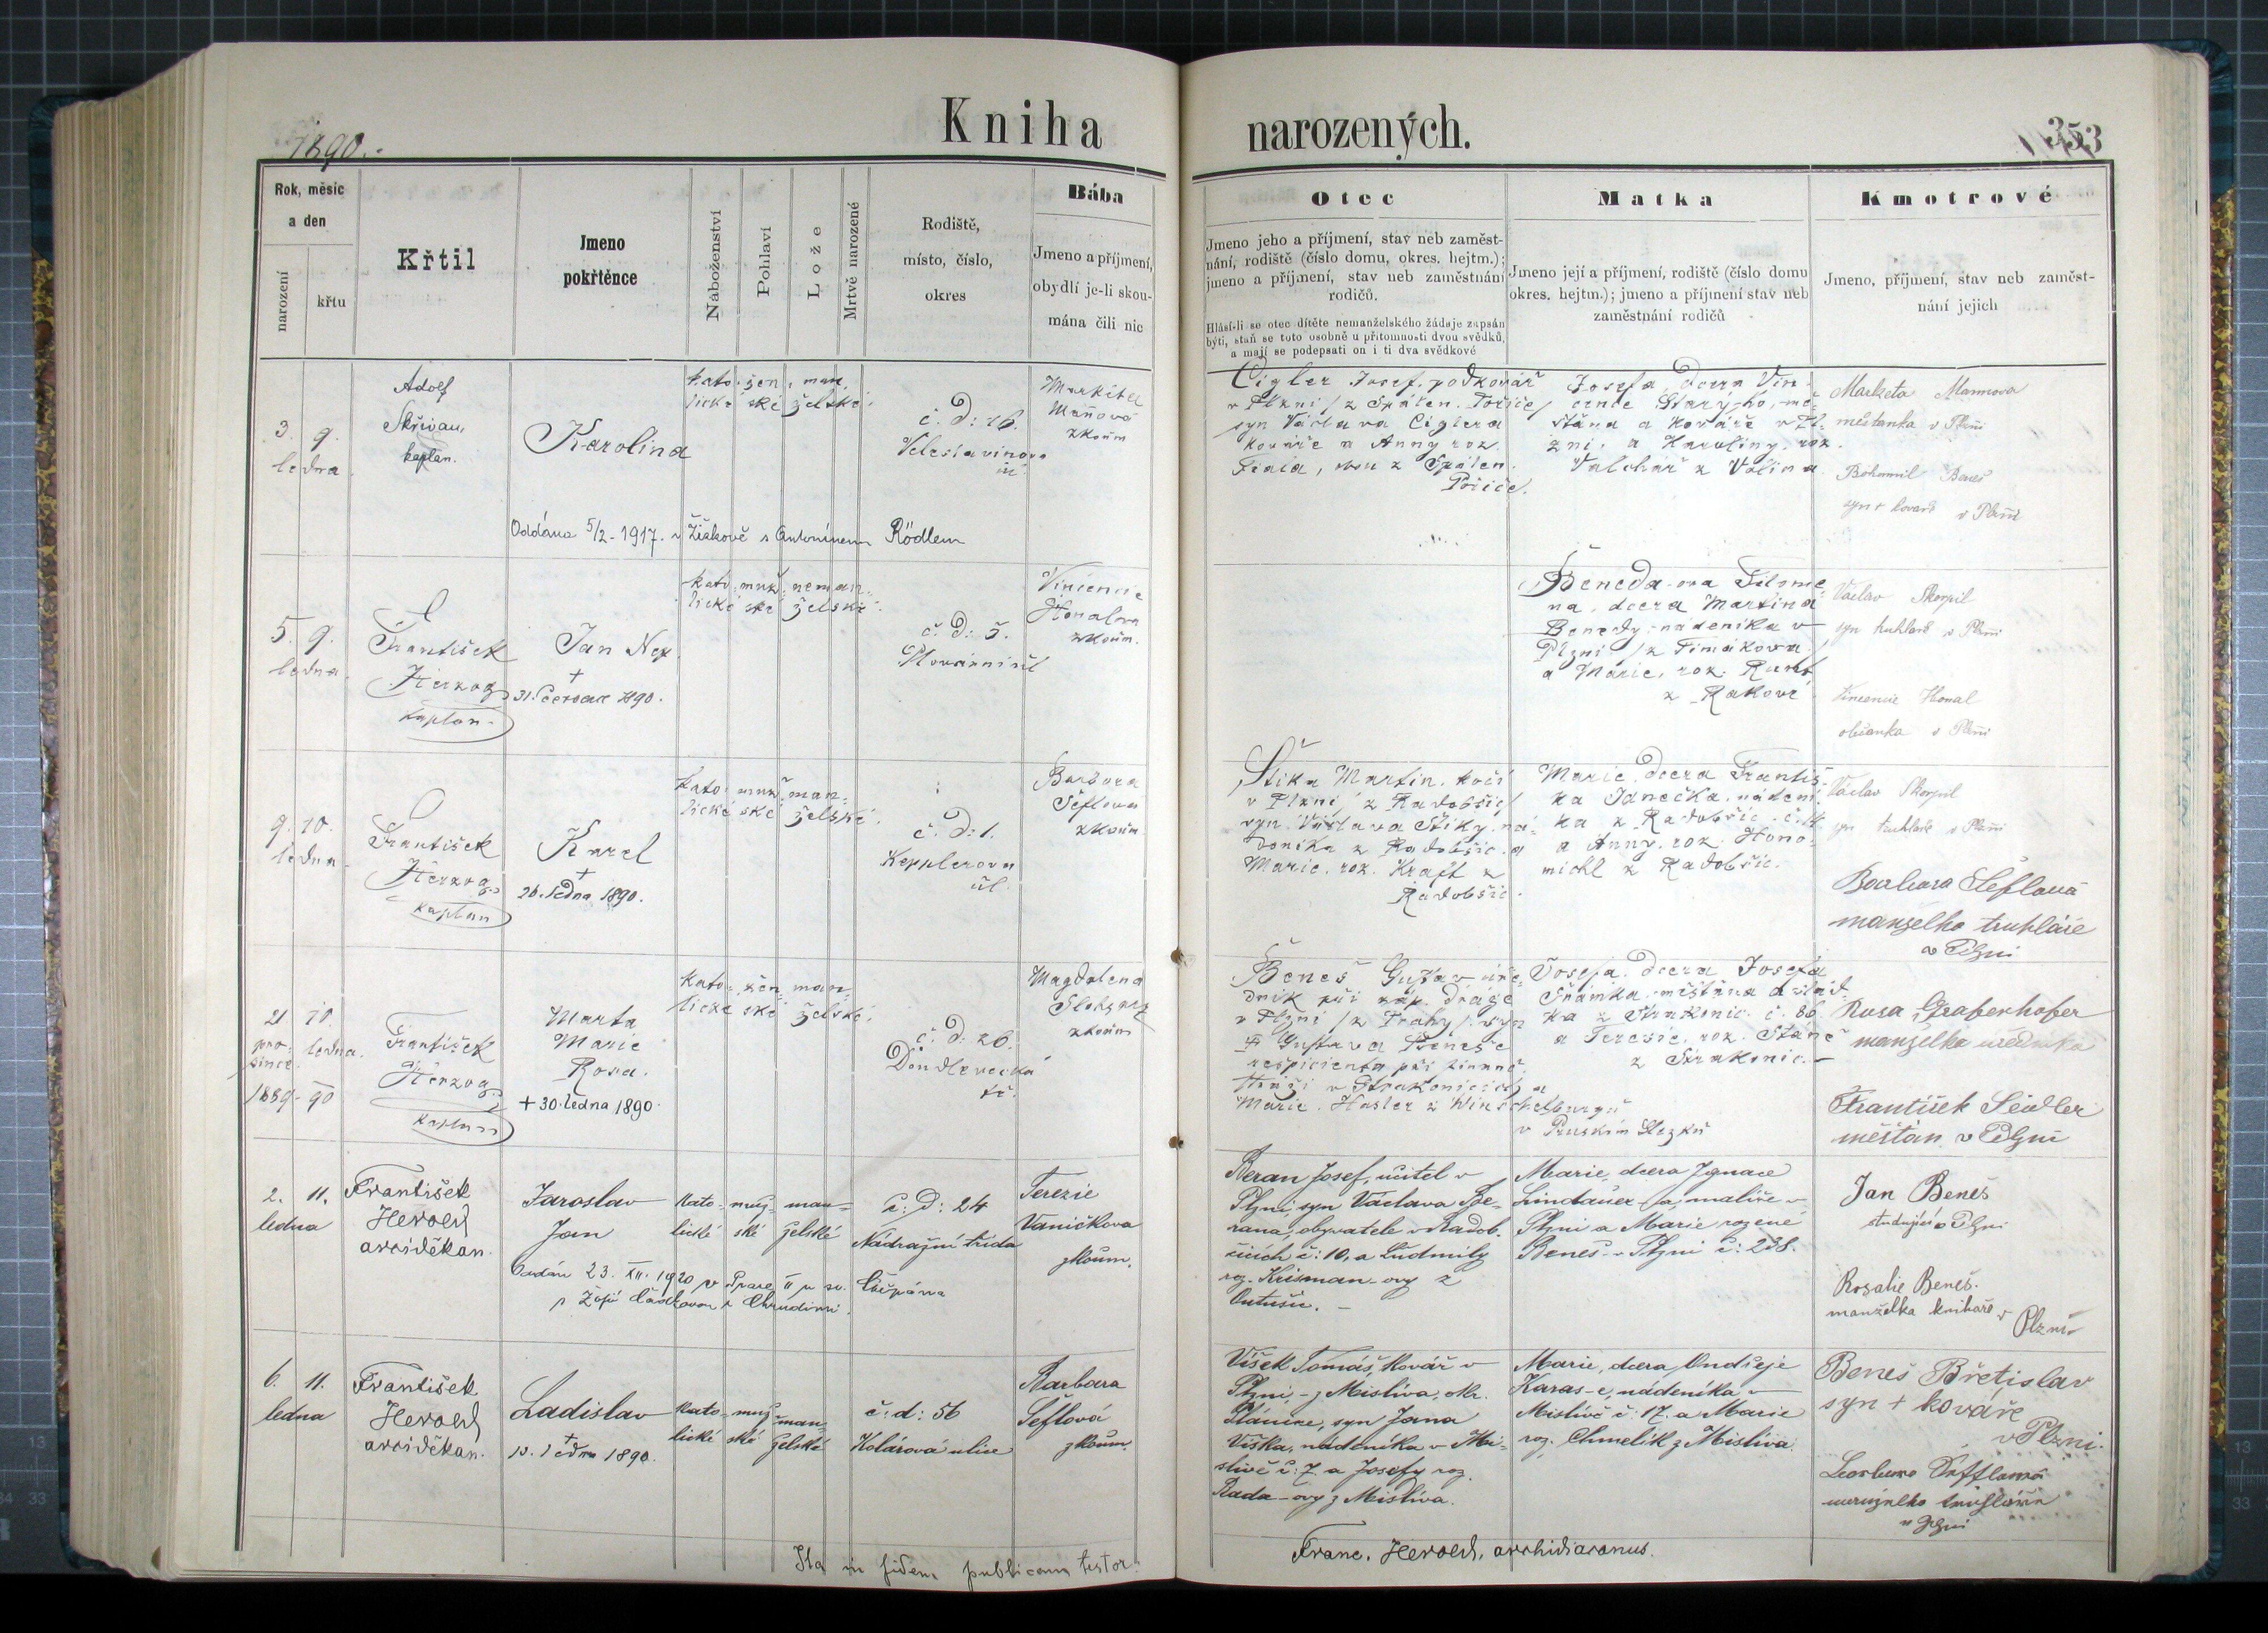 1890.
Kniha narozených.
353
Rok, měsíc
a den
narození
křtu
Křtil
Jmeno
pokřtěnce
Náboženství
Pohlaví
Lože
Mrtvě narozené
Rodiště,
místo, číslo,
okres
Bába
Jmeno a příjmení,
obydlí je-li skou-
mána čili nic
Otec
Jmeno jeho a příjmení, stav neb zaměst-
nání, rodiště (číslo domu, okres. hejtm.);
jmeno a příjmení, stav neb zaměstnání
rodičů.
Hlásí-li se otec dítěte nemanželského žádaje zapsán
býti, staň se toto osobně u přítomnosti dvou svědků,
a mají se podepsati on i ti dva svědkové
Matka
Jmeno její a příjmení, rodiště (číslo domu
okres. hejtm.); jmeno a příjmení stav neb
zaměstnání rodičů
Kmotrové
Jmeno, příjmení, stav neb zaměst-
nání jejich
3. 9.
ledna
Adolf
Skřivan,
kaplan.
Karolina
Oddána 5/2 - 1917. v Žižkově s Antonínem Rödlem
kato- žen- man-
lické ské želské.
č. d: 16.
Veleslavinova
ul.
Markéta
Manová
zkoum
Cigler Josef, podkovář
v Plzni / z Spálen. Poříče /
syn Václava Ciglera
kováře a Anny roz.
Fraia, obou z Spálen.
Poříče.
Josefa, dcera Vin-
cence Starýho, mě-
šťana a kováře v Pl-
zni, a Karoliny, roz.
Valchář z Volina
Marketa Mannova
měšťanka v Plzni
Bohumil Beneš
syn + kovaře v Plzni
5. 9.
ledna.
František
Herzog
kaplan.
Jan Nep.
+
31. červce 1890.
kato- muž- neman-
lické ské želské.
č. d: 5.
Plovární ul
Vincencie
Honalova
zkoum.
Beneda-ova Filome-
na, dcera Martina
Benedy, nádeníka v
Plzni / z Timákova /
a Marie, roz. Runt
z Rakové
Vaclav Skorpil
syn truhlaře v Plzni
Vincencie Honal
občanka v Plzni
9. 10.
ledna.
František
Herzog
kaplan
Karel
+
26. ledna 1890.
kato- muž- man-
lické ské želské.
č. d: 1.
Kepplerova
ul.
Barbora
Šeflova
zkoum
Štika Martin, kočí
v Plzni / z Radobčic /
syn Václava Štiky, ná-
deníka z Radobčic a
Marie, roz. Kraft z
Radobčic.
Marie, dcera Františ-
ka Janečka, nádení-
ka z Radobčic č. 14
a Anny, roz. Hono-
michl z Radobčic.
Vaclav Skorpil
syn truhlaře v Plzni
Barbara Šeflová
manželka truhláře
v Plzni
21 10.
pro- ledna.
since
1889 - 90
František
Herzog
kaplan
Marta
Marie
Rosa.
+ 30. ledna 1890.
kato- žen- man-
lické ské želské.
č. d: 26.
Doudlevecká
tř.
Magdalena
zkoum
Beneš Gustav úře-
dník při záp. dráze
v Plzni / z Prahy / syn
+ Gustava Beneše
respicienta při finanč.
stráži v Strakonicích, a
Marie. Hasler z Winschelburgu
v Pruském Slezku
Josefa, dcera Josefa
Šrámka, měšťana a
ka z Strakonic č. 86
a Terezie, roz.
z Strakonic. -
Rosa Graberhofer
manželka uředníka
František Seidler
měšťan v Plzni
2. 11.
ledna
František
Herold
arciděkan.
Jaroslav
Jan
Oddán 23. XII. 1920 v Praze II u sv. Štěpána
s Žofií Částkovou z Chrudimi.
kato- muž- man-
lické ské želské
č: d: 24
Nádražní třída
Terezie
Vaničkova
zkoum.
Beran Josef, učitel v
Plzni, syn Václava Be-
rana, obyvatele v Radob-
čicích č: 10, a Ludmily
roz. Krisman-ovy z
Marie, dcera Ignace
Lindauer-a, malíře v
Plzni a Marie rozené
Beneš v Plzni č: 238.
Jan Beneš
studující v Plzni
Rosalie Beneš.
manželka knihaře v
Plzni
6. 11.
ledna
František
Herold
arciděkan.
Ladislav
+
13. ledna 1890.
kato- muž- man-
lické ské želské
č: d: 56
Kolárová ulice
Barbara
Šeflová
zkoum.
Víšek Tomáš, kovář v
Plzni, - z Mislíva, okr.
Plánice, syn Jana
Víška, nádeníka v Mi-
slívě č: 7. a Josefy roz.
Rada-ovy z Mislíva.
Marie, dcera Ondřeje
Karas-e, nádeníka v
Mislívě č: 17. a Marie
roz. Chmelík z Mislíva
Beneš Břetislav
syn + kováře
v Plzni.
Barbara Šefflová
manželka truhláře
v Plzni
Ita in fidem publicam testor:
Franc. Herold, archidiaconus.